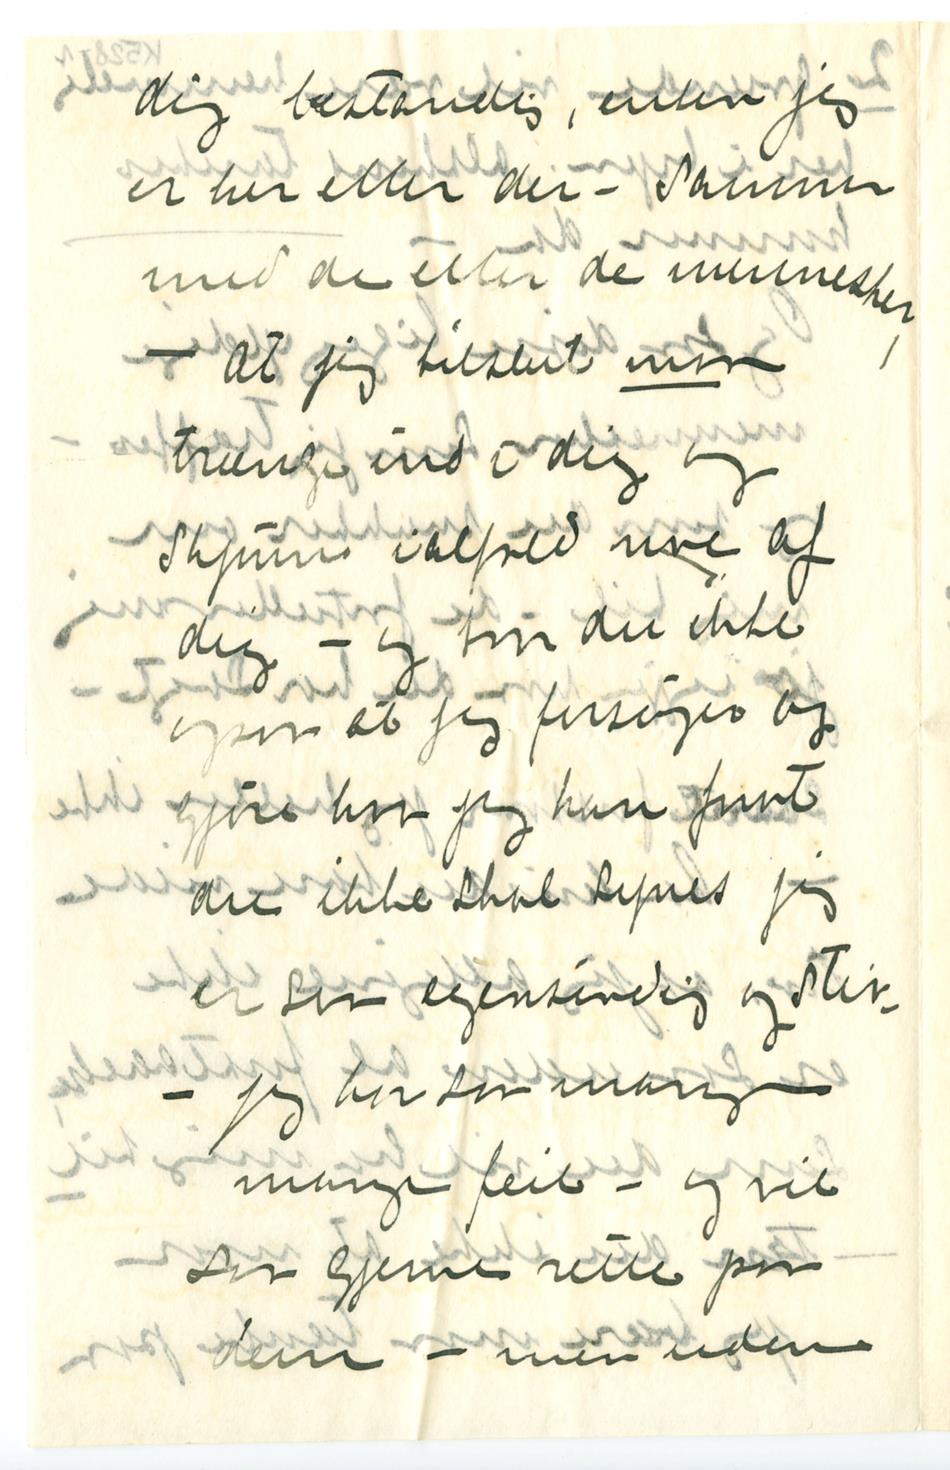 dig bestandig, enten jeg
er her eller der – sammen
med de eller de mennesker,
– at jeg tilslut maa
trænge ind i dig og
skjønne ialfald noe af
dig – og tror du ikke
ogsaa at jeg forsøger og
gjøre hva jeg kan forat
du ikke skal synes jeg
er saa egensindig og stiv
– jeg har saa mange
mange feil – og vil
saa gjerne rette paa
dem – men uden